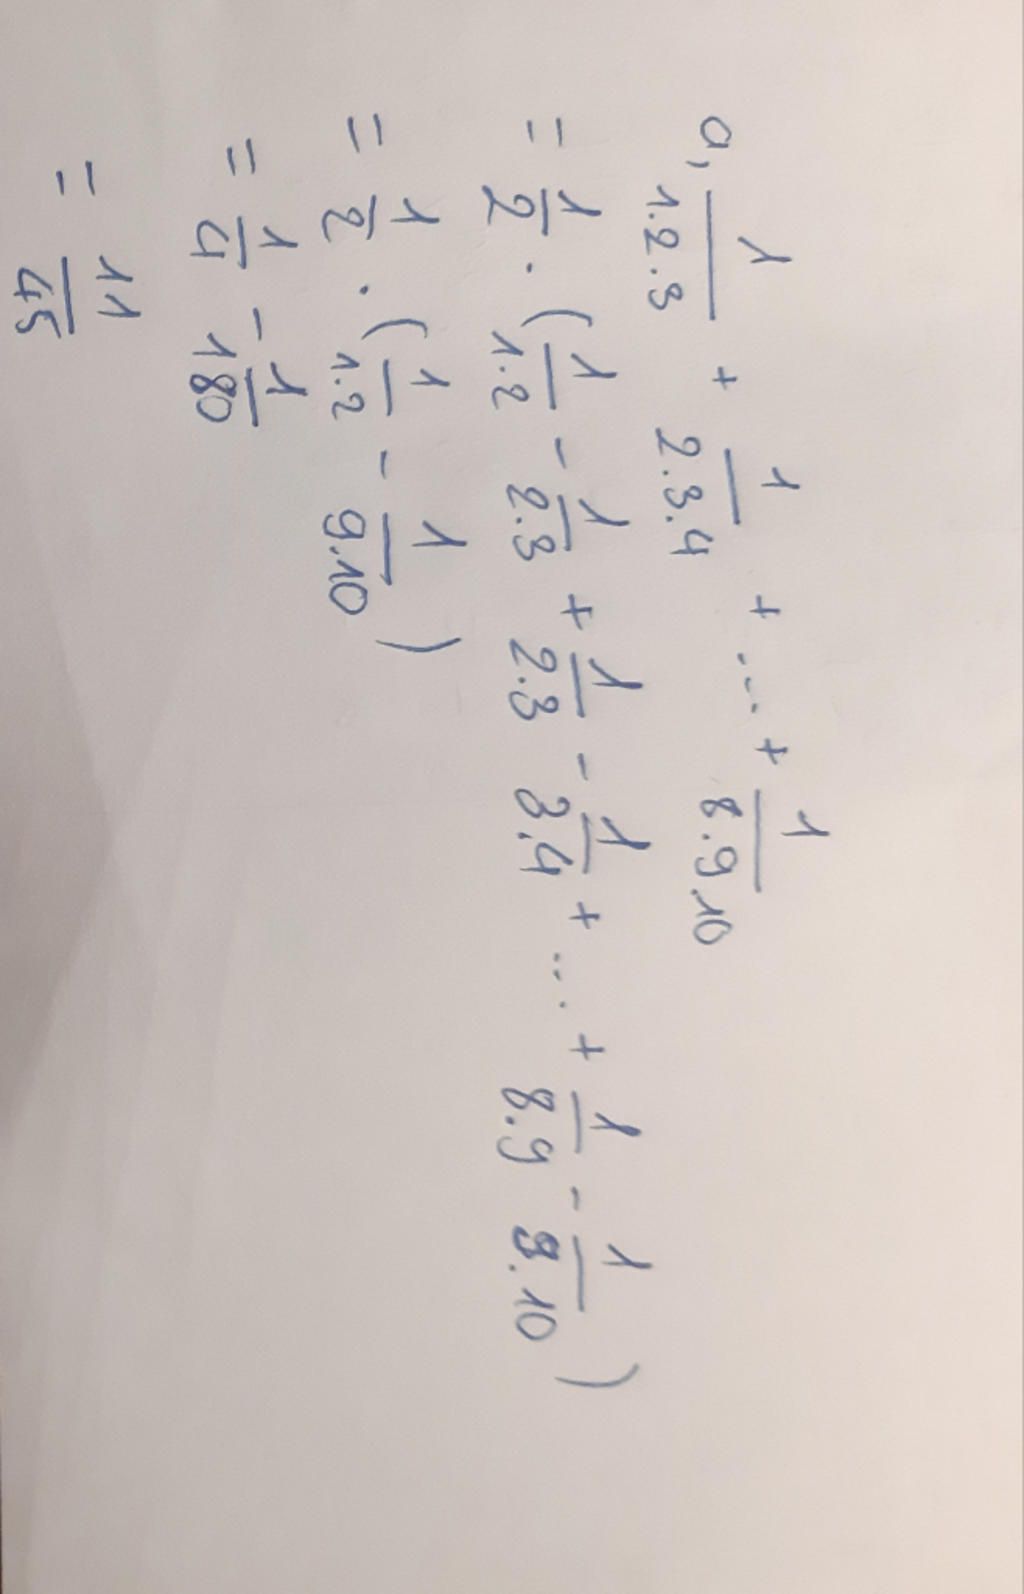 a, 1/1.2.3 + 1/2.3.4 + ... + 1/8.9.10
= 1/2 . (1/1.2 - 1/2.3 + 1/2.3 - 1/3.4 + ... + 1/8.9 - 1/9.10)
= 1/2 . (1/1.2 - 1/9.10)
= 1/4 - 1/180
= 11/45